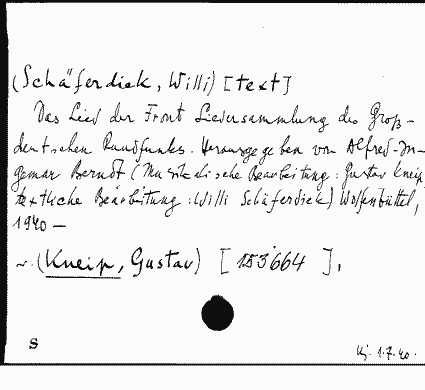 (Schäferdiek, Willi) [Text]
Das Lied der Front Liedersammlung des Groß-
deutschen Rundfunks. Herausgegeben von Alfred-In-
gemar Berndt (Musikalische Bearbeitung: Gustav Kneip,
textliche Bearbeitung: Willi Schäferdiek) Wolfenbüttel,
1940 —
(Kneip, Gustav) [153664],
S
Kj. 1.7.40.